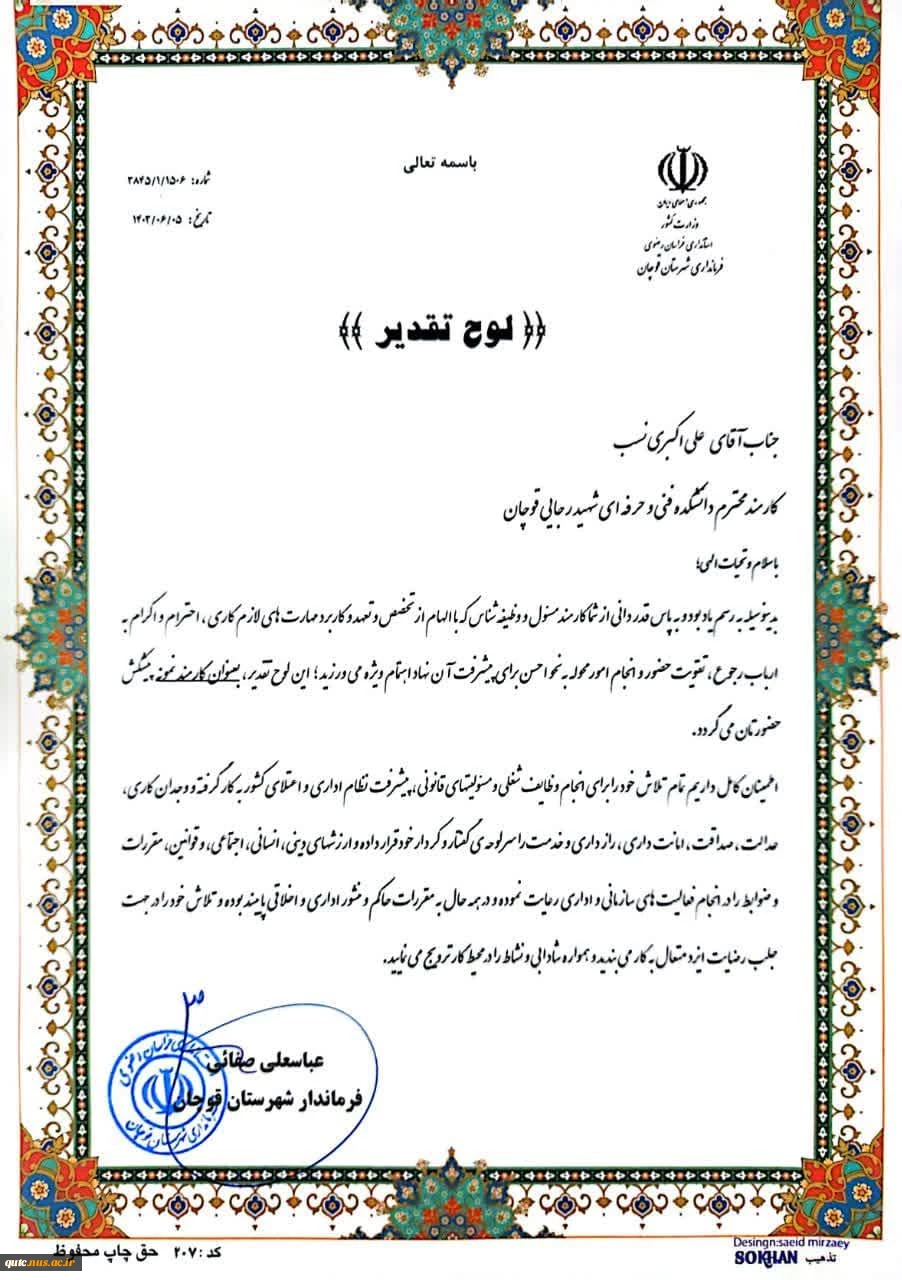 باسمه تعالی
جمهوری اسلامی ایران
وزارت کشور
استانداری خراسان رضوی
فرمانداری شهرستان قوچان
شماره: ۳۸۴۵/۱/۱۵۰۶
تاریخ: ۱۴۰۳/۰۶/۰۵
﴿﴿ لوح تقدیر ﴾﴾
جناب آقای علی اکبری نسب
کارمند محترم دانشکده فنی و حرفه ای شهید رجایی قوچان
با سلام و تحیات الهی؛
بدینوسیله به رسم یادبود و به پاس قدردانی از شما کارمند مسئول و وظیفه شناس که با الهام از تخصص و تعهد و کاربرد مهارت های لازم کاری ، احترام و اکرام به
ارباب رجوع ، تقویت حضور و انجام امور محوله به نحو احسن برای پیشرفت آن نهاد اهتمام ویژه می ورزید ؛ این لوح تقدیر ، بعنوان کارمند نمونه پیشکش
حضورتان می گردد.
اطمینان کامل داریم تمام تلاش خود را برای انجام وظایف شغلی و مسئولیتهای قانونی ، پیشرفت نظام اداری و اعتلای کشور به کار گرفته و وجدان کاری ،
عدالت ، صداقت ، امانت داری ، رازداری و خدمت را سرلوحه ی گفتار و کردار خود قرار داده و ارزشهای دینی ، انسانی ، اجتماعی ، و قوانین ، مقررات
و ضوابط را در انجام فعالیت های سازمانی و اداری رعایت نموده و در همه حال به مقررات حاکم و منشور اداری و اخلاقی پایبند بوده و تلاش خود را در جهت
جلب رضایت ایزد متعال به کار می بندید و همواره شادابی و نشاط را در محیط کار ترویج می نمایید.
عباسعلی صفائی
فرماندار شهرستان قوچان
استانداری خراسان رضوی
فرمانداری شهرستان قوچان
کد : ۲۰۷ حق چاپ محفوظ
Desingn:saeid mirzaey
تذهیب SOKHAN
qutc.nus.ac.ir